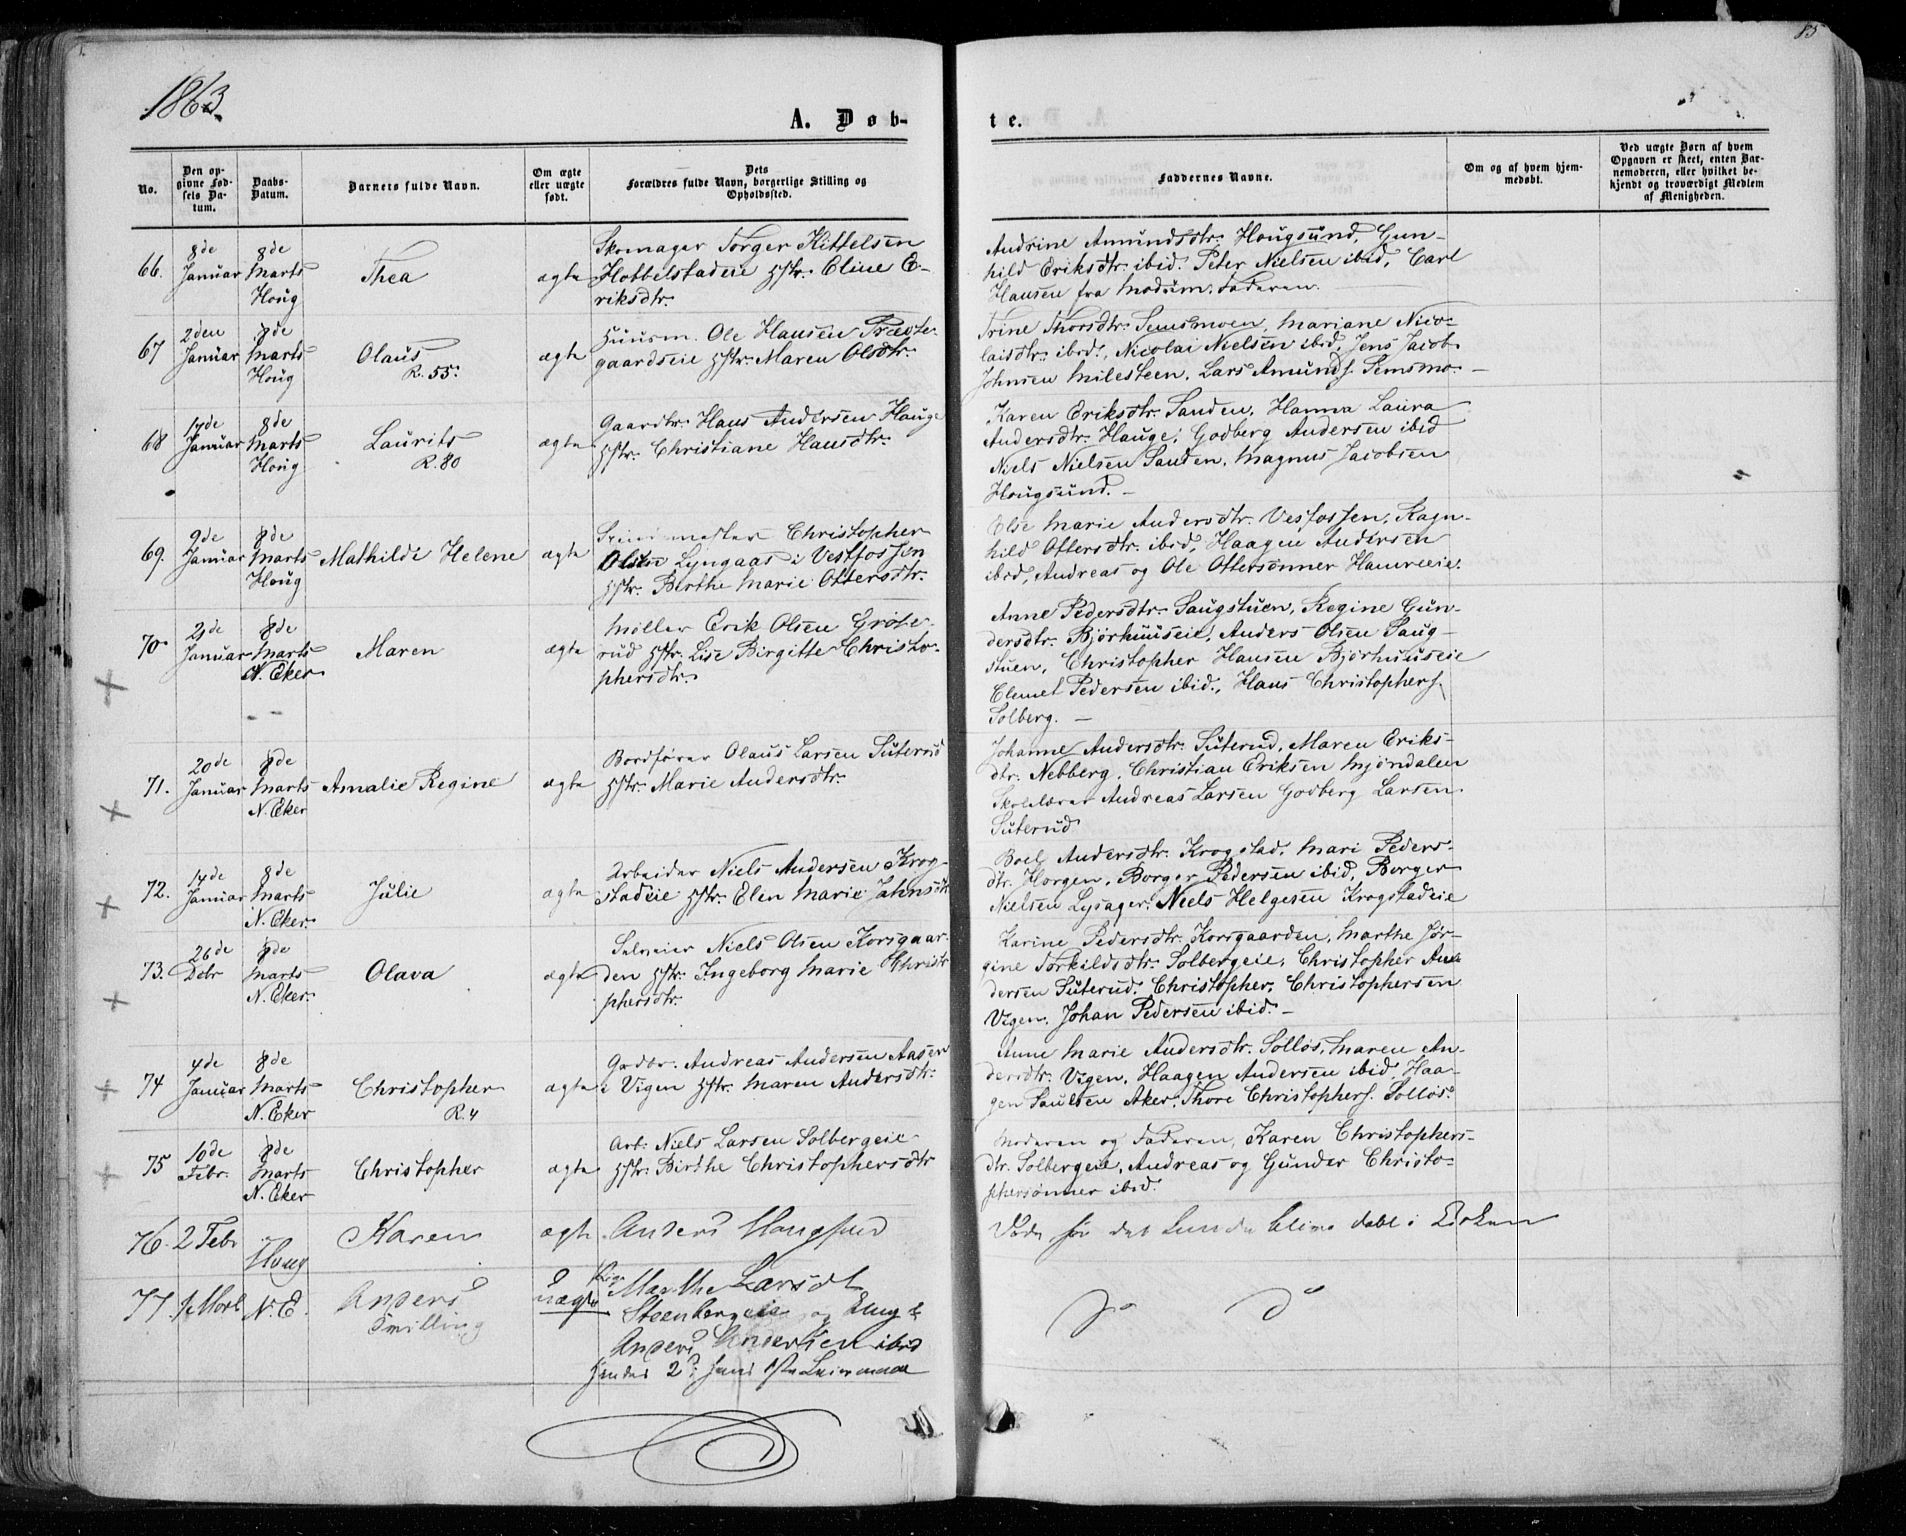 85
1863.
A. Døb-
te.
No.
Den op-
givne Fød-
sels Da-
tum.
Daabs-
Datum.
Barnets fulde Navn.
Om ægte
eller uægte
født.
Dets
Forældres fulde Navn, borgerlige Stilling og
Opholdssted.
Faddernes Navne.
Om og af hvem hjem-
medøbt.
Ved uægte Børn af hvem
Opgaven er skeet, enten Bar-
nemoderen, eller hvilket be-
kjendt og troværdigt Medlem
af Menigheden.
66.
8de
Januar
8de
Marts
Houg
Thea
ægte
Skomager Torger Kittelsen
Hobbelstadeie Hstr. Eline E-
riksdtr.
Andrine Amundsdtr. Hougsund, Gun-
hild Eriksdtr. ibid. Peter Nielsen ibid, Carl
Hansen fra Modum. Faderen.
67
2den
Januar
8de
Marts
Houg
Olaus
R. 55.
ægte
Huusm. Ole Hansen Præste-
gaardseie Hstr. Maren Olsdtr.
Trine Thorsdtr. Semsmoen, Mariane Nico-
laisdtr. ibid, Nicolai Nielsen ibid, Jens Jacob
Johnsen Milesteen, Lars Amunds. Semsmo.
68
14de
Januar
8de
Marts
Houg
Laurits
R. 80
ægte
Gaardbr. Hans Andersen Hauge
Hstr. Christiane Hansdtr.
Karen Eriksdtr. Sanden, Hanna Laura
Andersdtr. Hauge, Godberg Andersen ibid
Niels Nielsen Sanden, Magnus Jacobsen
Hougsund. –
69.
9de
Januar
8de
Marts
Houg
Mathilde Helene
ægte
Christopher
Olsen Lyngaas i Vestfossen
Hstr. Birthe Marie Ottersdtr.
Else Marie Andersdtr. Vesfossen, Ragn-
hild Ottersdtr. ibid, Haagen Andersen
ibid, Andreas og Ole Ottersønner Hamreeie.
70
21de
Januar
8de
Marts
N. Eker
Maren
ægte
Møller Erik Olsen Grøse-
rud Hstr. Lise Birgitte Christo-
phersdtr.
Anne Pedersdtr. Saugstuen, Regine Gun-
dersdtr. Bjørhuuseie, Anders Olsen Saug-
stuen, Christopher Hansen Bjørhuuseie
Clemet Pedersen ibid., Hans Christophers.
Solberg. –
71.
20de
Januar
8de
Marts
N. Eker
Amalie Regine
ægte
Bordfører Olaus Larsen Suterud
Hstr. Marie Andersdtr.
Johanne Andersdtr. Suterud, Maren Eriks-
dtr. Nebberg, Christian Eriksen Mjøndalen
Skolelærer Andreas Larsen Godberg Larsen
Suterud
72.
14de
Januar
8de
Marts
N. Eker.
Julie
ægte
Arbeider Niels Andersen Krog-
stadeie Hstr. Elen Marie Jahnsdtr
Boel Andersdtr. Krogstad, Mari Peders-
dtr. Horgen, Borger Pedersen ibid, Borger
Nielsen Lysager. Niels Helgesen Krogstadeie
73.
26de
Debr
8de
Marts
N. Eker.
Olava
ægte
Selveier Niels Olsen Korsgaar-
den Hstr. Ingeborg Marie Christo
phersdtr.
Karine Pedersdtr. Korsgaarden, Marthe Jør-
gine Torkildsdtr. Solbergeie, Christopher An-
dersen Suterud, Christopher Christophersen
Vegen, Johan Pedersen ibid. –
74
4de
Januar
8de
Marts
N. Eker
Christopher
R. 4
ægte
Grdbr. Andreas Andersen Aasen
i Vigen Hstr. Maren Andersdtr.
Anne Marie Andersdtr. Solløs, Maren An-
dersdtr. Vegen, Haagen Andersen ibid. Haa-
gen Paulsen Aker, Thore Christophers. Solløs.
75
10de
Febr.
8de
Marts
N. Eker
Christopher
ægte
Arb. Niels Larsen Solbergeie
Hstr. Birthe Christophersdtr
Moderen og Faderen, Karen Christophers-
dtr. Solbergeie, Andreas og Gunder Christo-
phersønner ibid.
76.
2 Febr
Houg
Karen
ægte
Anders Hougsund
Døde før det kunde blive døbt i Kirken
77.
1 Marts
N. E.
Anders
Tvilling
uægte
Pige Marthe Larsdt
Steenbergeie og Ung K
Anders Andersen ibid
Hendes 2d, hans 1ste Leiermaal
do do